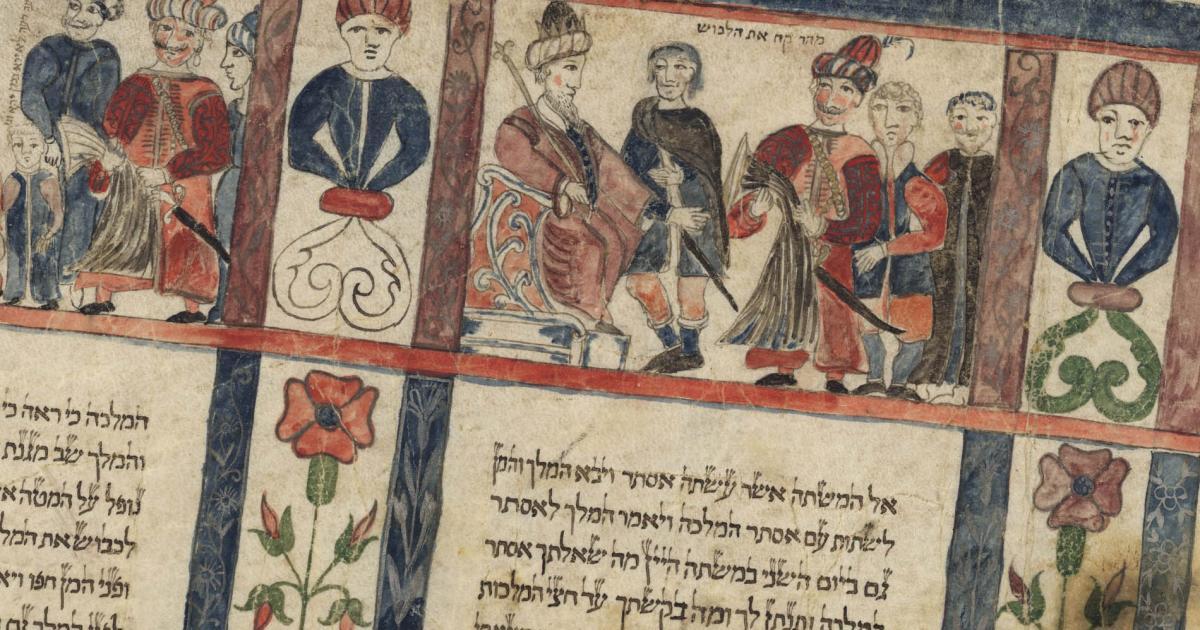 מהר קח את הלבוש
אל המשתה אשר עשתה אסתר ויבא המלך והמן
לשתות עם אסתר המלכה ויאמר המלך לאסתר
גם ביום השני במשתה היין מה שאלתך אסתר
המלכה ותנתן לך ומה בקשתך עד חצי המלכות
המלכה כי ראה כי
והמלך שב מגנת
נופל על המטה א
לכבוש את המל
ופני המן חפו ויא